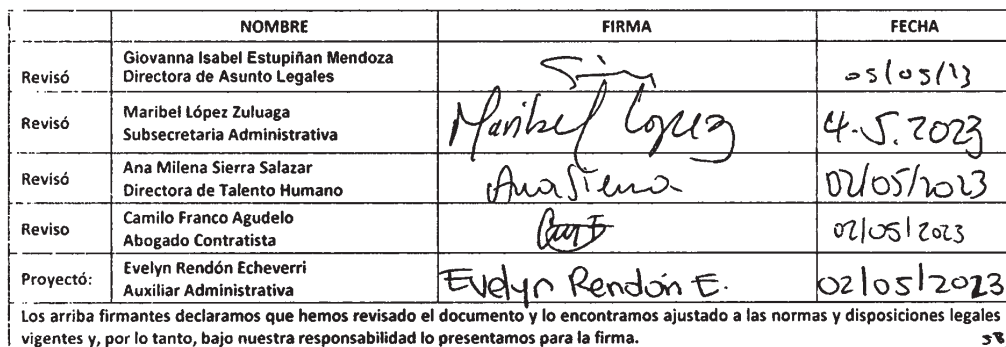 NOMBRE FIRMA FECHA
Revisó Giovanna Isabel Estupiñan Mendoza
Directora de Asunto Legales 05/05/23
Revisó Maribel López Zuluaga
Subsecretaria Administrativa Maribel López 4.5.2023
Revisó Ana Milena Sierra Salazar
Directora de Talento Humano Ana Sierra 02/05/2023
Reviso Camilo Franco Agudelo
Abogado Contratista 02/05/2023
Proyectó: Evelyn Rendón Echeverri
Auxiliar Administrativa Evelyn Rendón E. 02/05/2023
Los arriba firmantes declaramos que hemos revisado el documento y lo encontramos ajustado a las normas y disposiciones legales
vigentes y, por lo tanto, bajo nuestra responsabilidad lo presentamos para la firma.